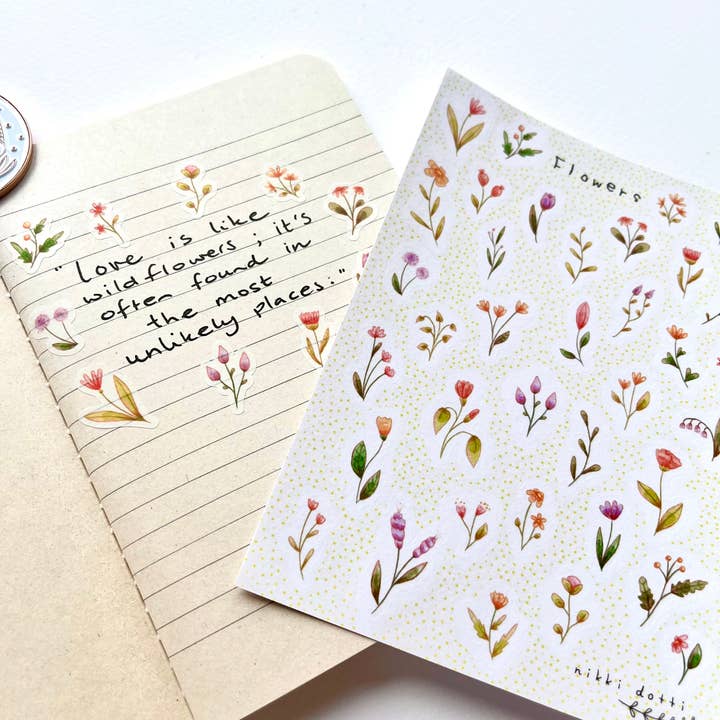 "Love is like
wildflowers; it's
often found in
the most
unlikely places."
Flowers
nikki dotti